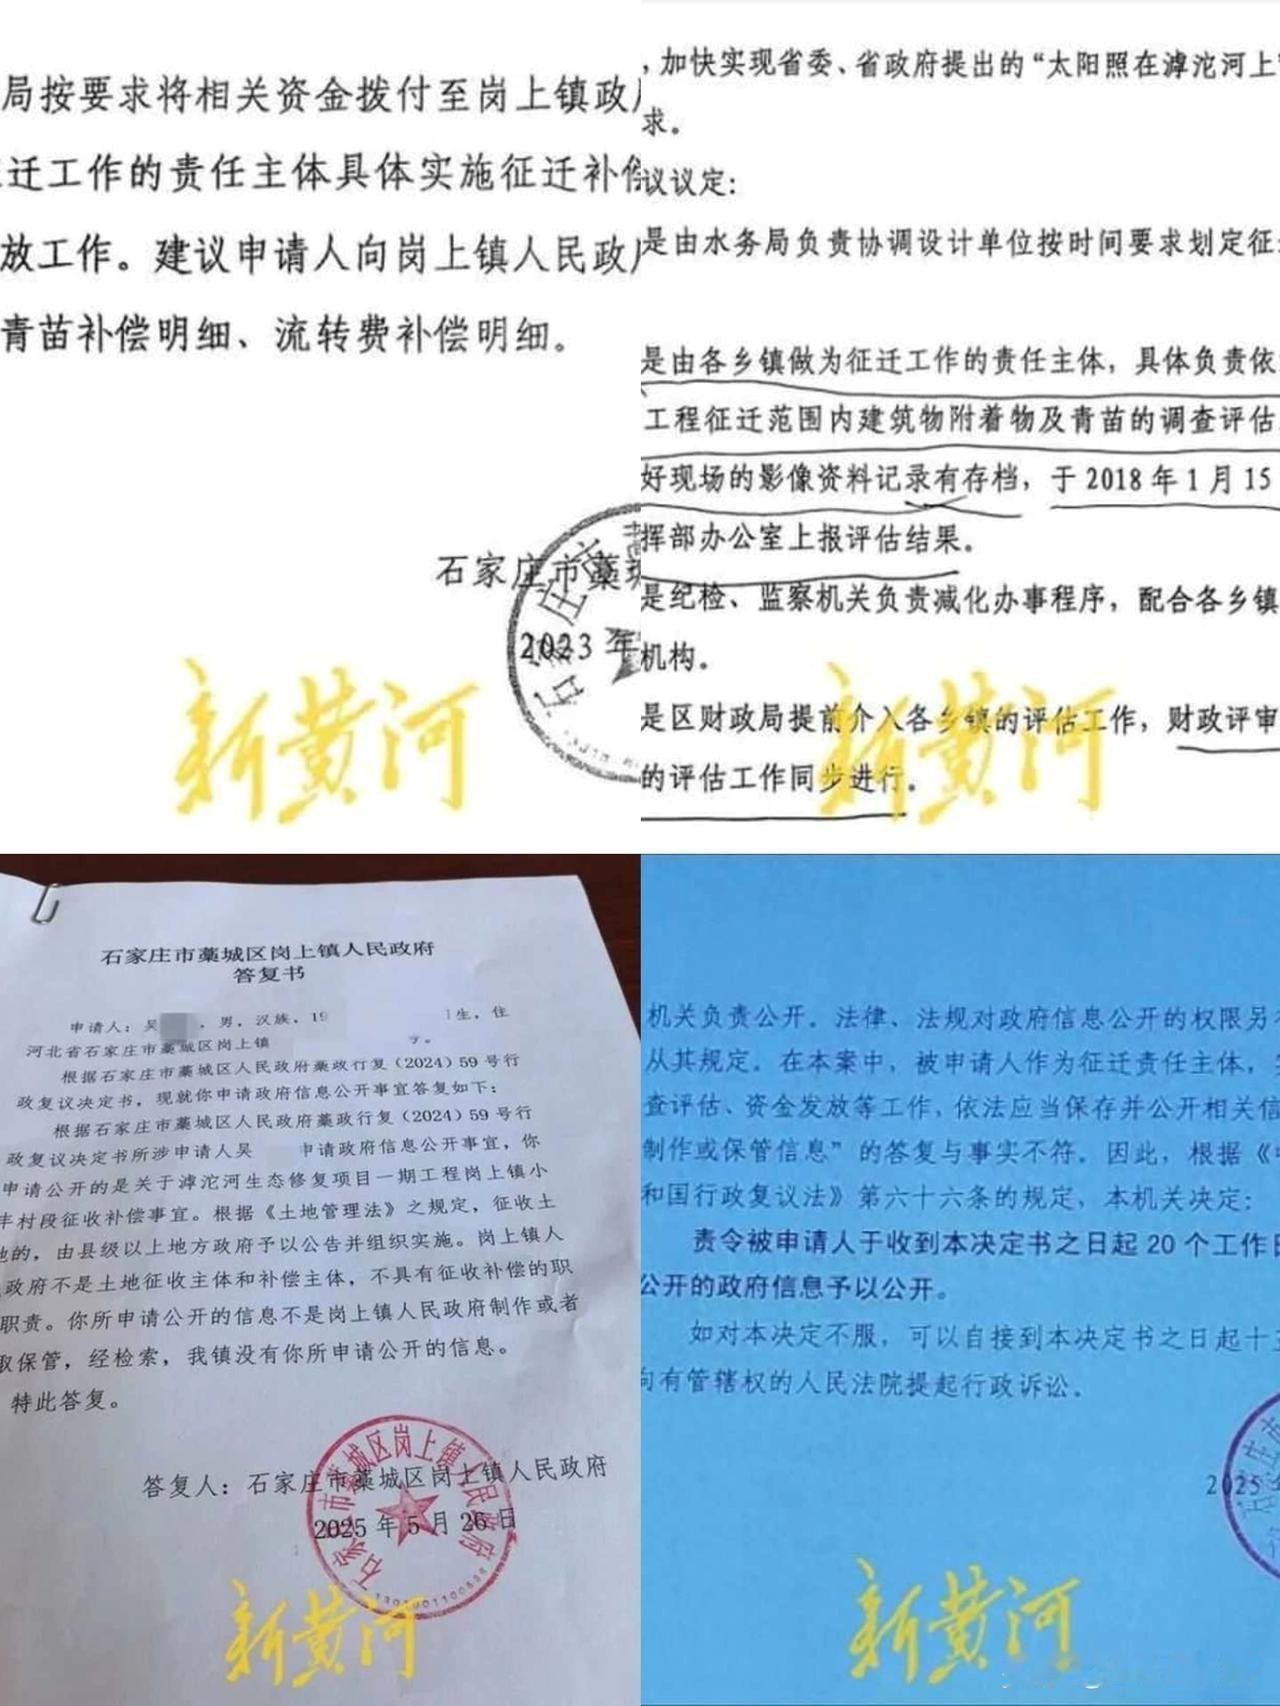 局按要求将相关资金拨付至岗上镇政
迁工作的责任主体具体实施征迁补
放工作。建议申请人向岗上镇人民政
青苗补偿明细、流转费补偿明细。
石家庄市藁
2023年
新黄河
，加快实现省委、省政府提出的“太阳照在滹沱河上
求。
议议定：
是由水务局负责协调设计单位按时间要求划定征
是由各乡镇做为征迁工作的责任主体，具体负责依
工程征迁范围内建筑物附着物及青苗的调查评估
好现场的影像资料记录有存档，于2018年1月15
挥部办公室上报评估结果。
是纪检、监察机关负责减化办事程序，配合各乡镇
机构。
是区财政局提前介入各乡镇的评估工作，财政评审
的评估工作同步进行。
新黄河
石家庄市藁城区岗上镇人民政府
答复书
申请人：吴 ，男，汉族，19 生，住
河北省石家庄市藁城区岗上镇 号。
根据石家庄市藁城区人民政府藁政行复（2024）59号行
政复议决定书，现就你申请政府信息公开事宜答复如下：
根据石家庄市藁城区人民政府藁政行复（2024）59号行
政复议决定书所涉申请人吴 申请政府信息公开事宜，你
申请公开的是关于滹沱河生态修复项目一期工程岗上镇小
丰村段征收补偿事宜。根据《土地管理法》之规定，征收土
地的，由县级以上地方政府予以公告并组织实施。岗上镇人
政府不是土地征收主体和补偿主体，不具有征收补偿的职
职责。你所申请公开的信息不是岗上镇人民政府制作或者
取保管，经检索，我镇没有你所申请公开的信息。
特此答复。
答复人：石家庄市藁城区岗上镇人民政府
2025年5月26日
石家庄市藁城区岗上镇人民政府
新黄河
机关负责公开。法律、法规对政府信息公开的权限另
从其规定。在本案中，被申请人作为征迁责任主体，
查评估、资金发放等工作，依法应当保存并公开相关信
制作或保管信息”的答复与事实不符。因此，根据《
和国行政复议法》第六十六条的规定，本机关决定：
责令被申请人于收到本决定书之日起20个工作日
公开的政府信息予以公开。
如对本决定不服，可以自接到本决定书之日起十五
向有管辖权的人民法院提起行政诉讼。
2025
新黄河